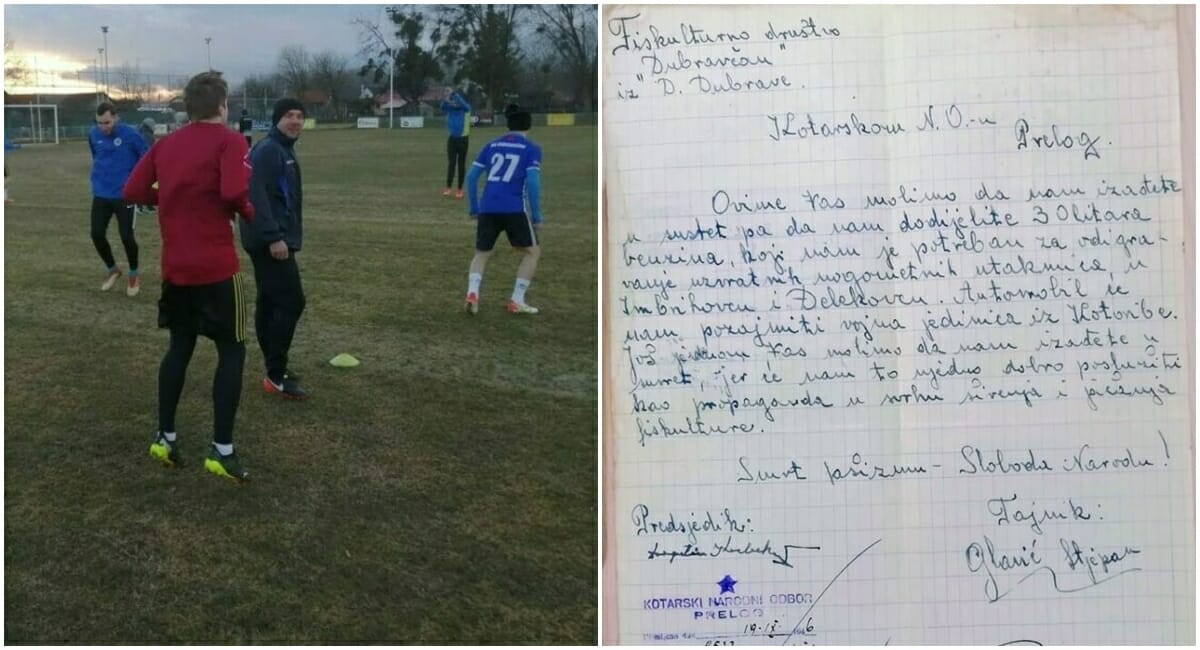 27
Fiskulturno društvo
"Dubravčan"
iz D. Dubrave.
Kotarskom N. O.-u
Prelog.
Ovime Vas molimo da nam izađete
u susret pa da nam dodijelite 30 litara
benzina, koji nam je potreban za odigra-
vanje uzvratnih nogometnih utakmica, u
Imbrihovcu i Đelekovcu. Automobil će
nam pozajmiti vojna jedinica iz Kotoribe.
Još jednom Vas molimo da nam izađete u
susret, jer će nam to ujedno dobro poslužiti
kao propaganda u svrhu širenja i jačanja
fiskulture.
Smrt fašizmu - Sloboda Narodu!
Predsjedik:
Tajnik:
Glavić Stjepan
KOTARSKI NARODNI ODBOR
PRELOG